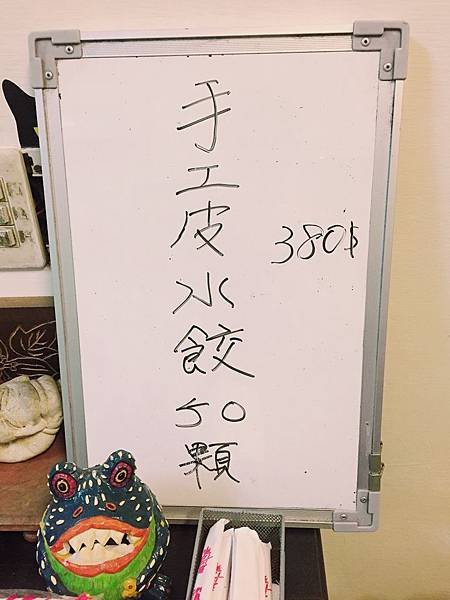 手工皮水餃50顆
380$